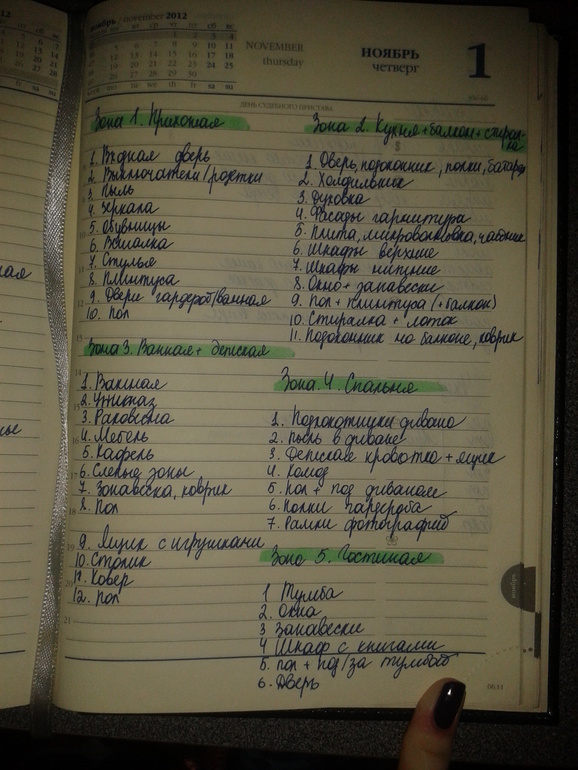 ноябрь / november 2012
NOVEMBER
thursday
НОЯБРЬ
четверг
1
ДЕНЬ СУДЕБНОГО ПРИСТАВА
Зона 1. Прихожая
1. Входная дверь
2. Выключатели/розетки
3. Пыль
4. Зеркала
5. Обувницы
6. Вешалка
7. Стулья
8. Плинтуса
9. Двери гардероб/ванная
10. Пол
Зона 2. Кухня+балкон+стирал-
ка
1. Дверь, подоконник, полки, батарея
2. Холодильник
3. Духовка
4. Фасады гарнитура
5. Плита, микроволновка, чайник
6. Шкафы верхние
7. Шкафы нижние
8. Окно+занавески
9. Пол+плинтуса (+балкон)
10. Стиралка + лоток
11. Подоконник на балконе, коврик
Зона 3. Ванная+детская
1. Ванная
2. Унитаз
3. Раковина
4. Мебель
5. Кафель
6. Слепые зоны
7. Занавеска, коврик
8. Пол
9. Ящик с игрушками
10. Столик
11. Ковер
12. Пол
Зона 4. Спальня
1. Подлокотники дивана
2. Пыль в диване
3. Детская кроватка + ящик
4. Комод
5. Пол + под диваном
6. Полки гардероба
7. Рамки фотографий
Зона 5. Гостиная
1 Тумба
2. Окна
3 Занавески
4 Шкаф с книгами
5. пол + под/за тумбой
6. Дверь